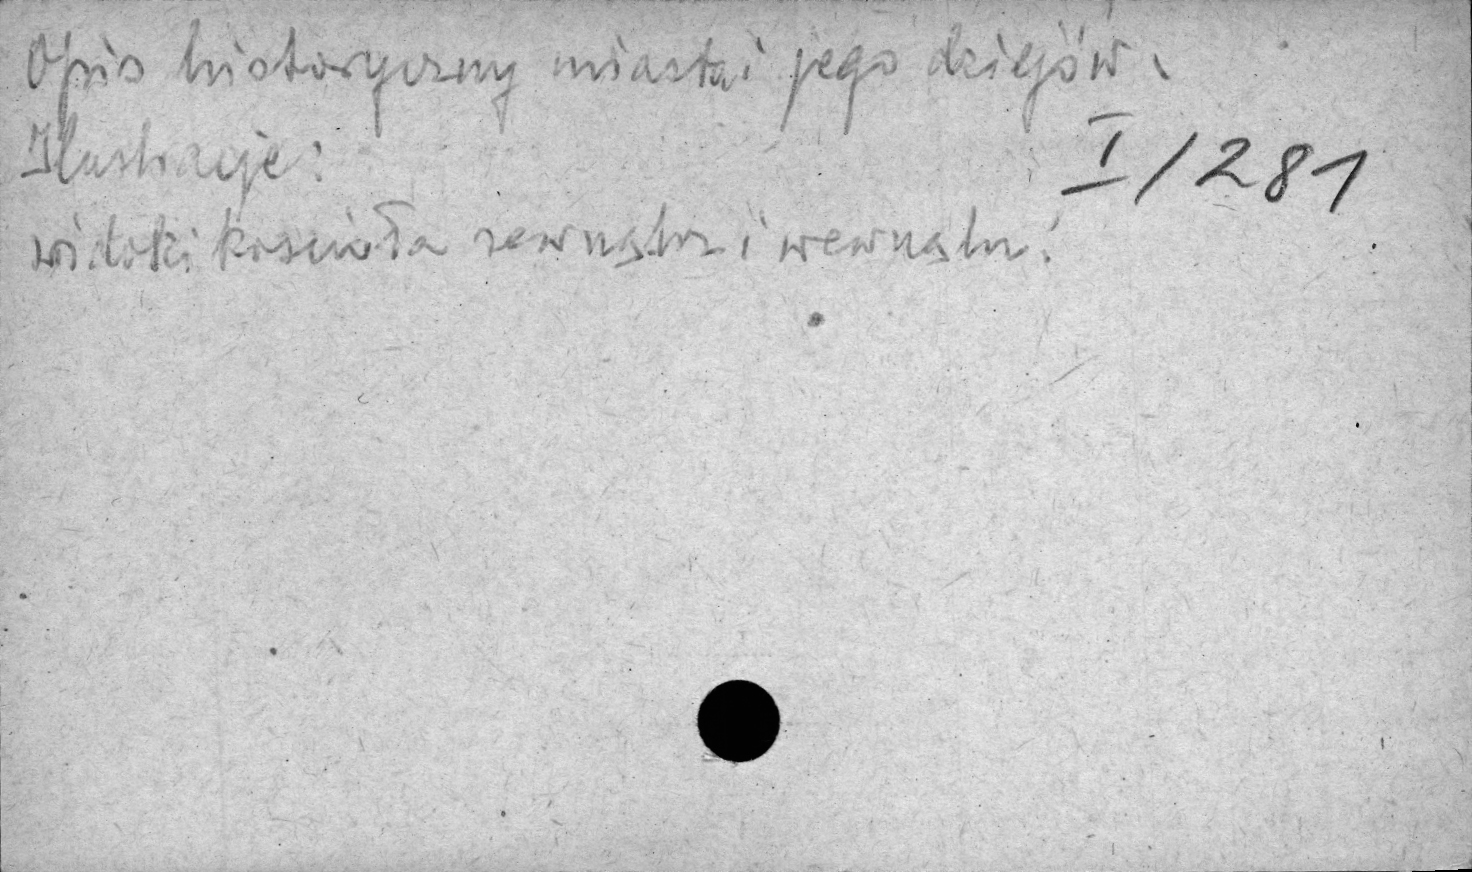 Opis historyczny miasta i jego dziejów.
Ilustracje:
I/281
widoki kościoła zewnątrz i wewnątrz.